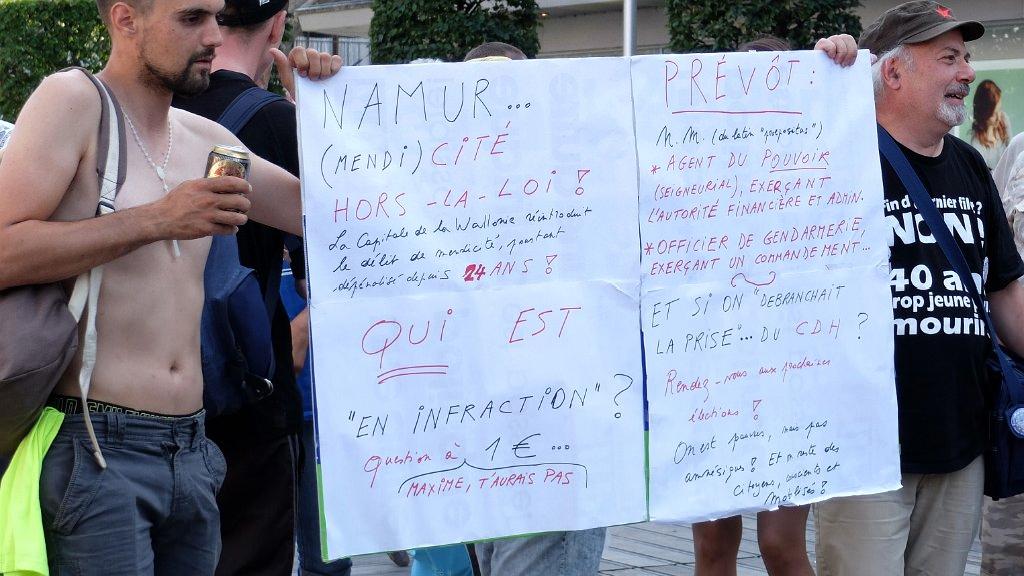 NAMUR...
(MENDI) CITÉ
HORS-LA-LOI !
La Capitale de la Wallonie réintroduit
le délit de mendicité, pourtant
dépénalisé depuis 24 ANS !
QUI EST
"EN INFRACTION" ?
Question à 1 € ...
MAXIME, T'AURAIS PAS
PRÉVÔT :
N.M. (du latin "prepositus")
* AGENT DU POUVOIR
(SEIGNEURIAL), EXERÇANT
L'AUTORITÉ FINANCIÈRE ET ADMIN.
* OFFICIER DE GENDARMERIE,
EXERÇANT UN COMMANDEMENT...
ET SI ON "DEBRANCHAIT
LA PRISE"... DU CDH ?
Rendez-vous aux prochaines
élections !
On est pauvres, mais pas
amnésiques ! Et on reste des
citoyens, conscients et
mobilisés !
in d dernier fil ?
NON!
40 an
rop jeune
mouri